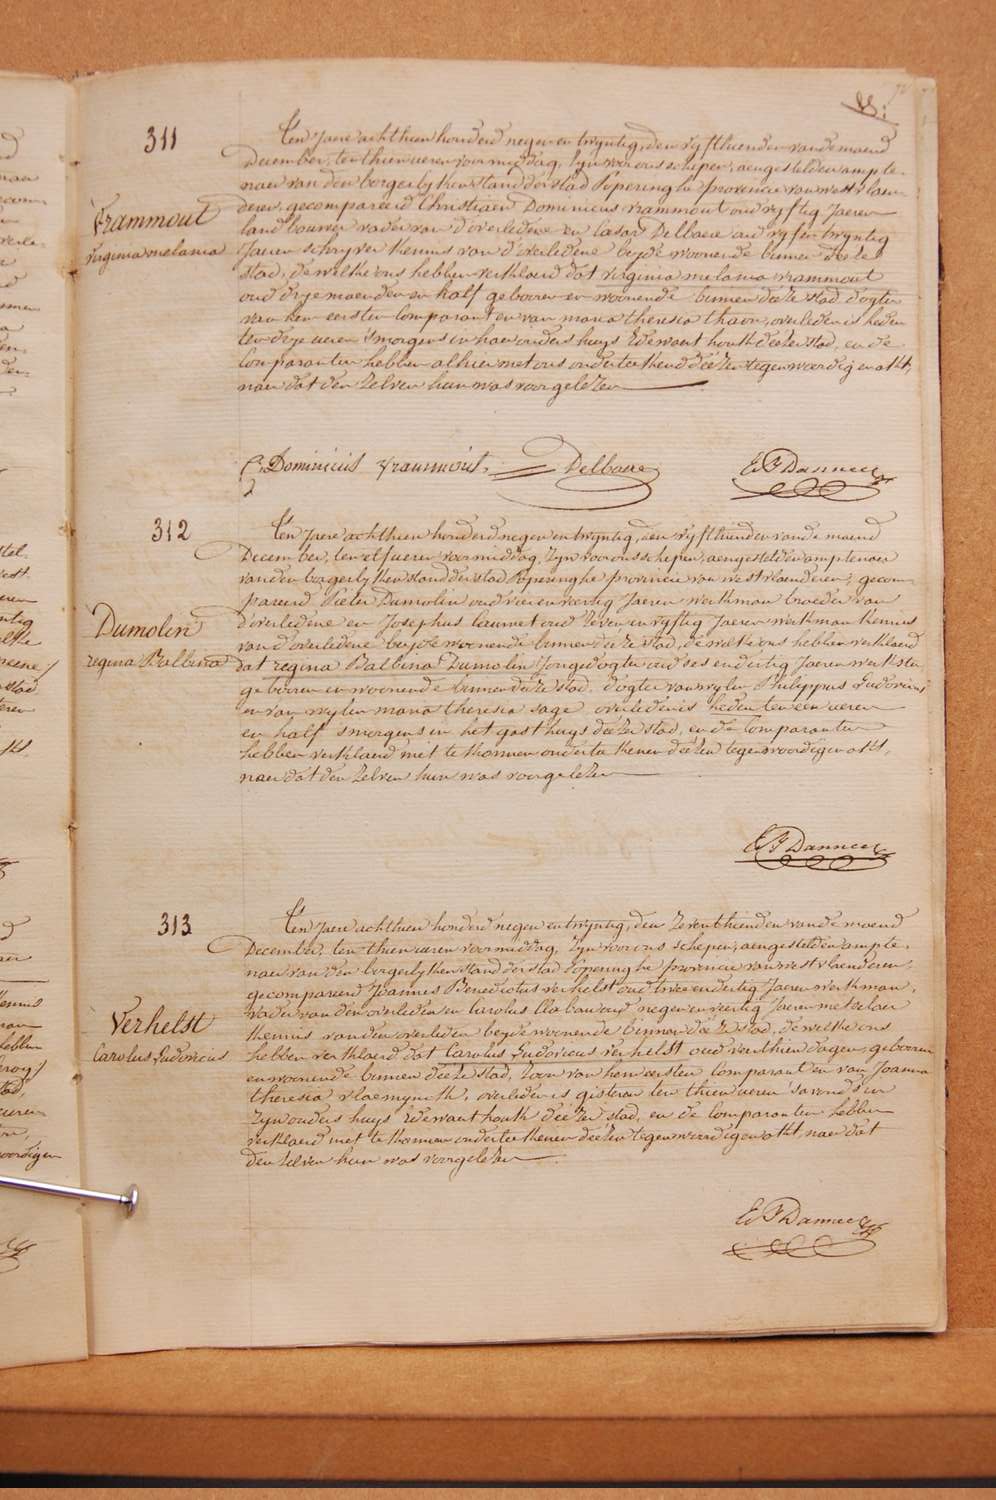 311
Ten Jaere achthien honderd negen en twyntig, den vyfthienden van de maend
December, ten thien ueren voormiddag, Zyn voor ons schepen, aengestelden ampte-
naer van den borgerlyken stand der stad Poperinghe provincie van westvlaen
deren, gecompareerd Christiaen Dominicus vrammout oud vyftig Jaeren
Vrammout
virginia melania
landbouwer vader van d'overledene en Delbaere oud vyfentwyntig
Jaeren schryver kennis van d'overledene beyde woonende binnen deeze
stad, dewelke ons hebben verklaerd dat virginia melania vrammout
oud drye maenden en half geboren en woonende binnen deeze stad dogter
van hen eersten Comparant en van maria theresia, overleden is heden
ten drye ueren s'morgens in haer ouders huys Edewaert houk deezer stad, en de
Comparanten hebben alhier met ons onderteekend deezen tegenwoordigen akt,
naer dat den zelven hun was voorgelezen
C. Dominicus vrammout. Delbaere E F Dannee
312
Ten Jaere achthien honderd negen en twyntig, den vyfthienden van de maend
December, ten elf ueren voormiddag, Zyn voor ons schepen, aengestelden amptenaer
van den borgerlyken stand der stad Poperinghe provincie van westvlaenderen, gecom-
pareerd Pieter Dumolin oud vier en veertig Jaeren werkman broeder van
Dumolin
regina Balbina
d'overledene en Josephus oud zeven en vyftig Jaeren werkman kennis
van d'overledene beyde woonende binnen deeze stad, dewelke ons hebben verklaerd
dat regina Balbina Dumolin Jongedogter oud ses en dertig Jaeren
geboren en woonende binnen deeze stad, dogter van wylen Philippus Ludovicus
en van wylen maria theresia sage overleden is heden ten een ueren
en half smorgens in het gasthuys deezer stad, en de Comparanten
hebben verklaerd niet te konnen onderteekenen deezen tegenwoordigen akt,
naer dat den zelven hun was voorgelezen
E F Dannee
313
Ten Jaere achthien honderd negen en twyntig, den zeventhienden van de maend
December, ten thien ueren voormiddag, Zyn voor ons schepen, aengestelden ampte-
naer van den borgerlyken stand der stad Poperinghe provincie van westvlaenderen,
gecompareerd Joannes Benedictus verhelst oud twee en dertig Jaeren werkman,
Verhelst
Carolus Ludovicus
vader van den overleden en Carolus oud negen en veertig Jaeren metselaer
kennis van den overleden beyde woonende binnen deeze stad, dewelke ons
hebben verklaerd dat Carolus Ludovicus verhelst oud veerthien dagen, geboren
en woonende binnen deeze stad, Zoon van hen eersten Comparant en van Joanna
theresia vlaemynck, overleden is gisteren ten thien ueren s'avonds in
zyn ouders huys Edewaert houk deezer stad, en de Comparanten hebben
verklaerd niet te konnen onderteekenen deezen tegenwoordigen akt, naer dat
den zelven hun was voorgelezen
E F Dannee